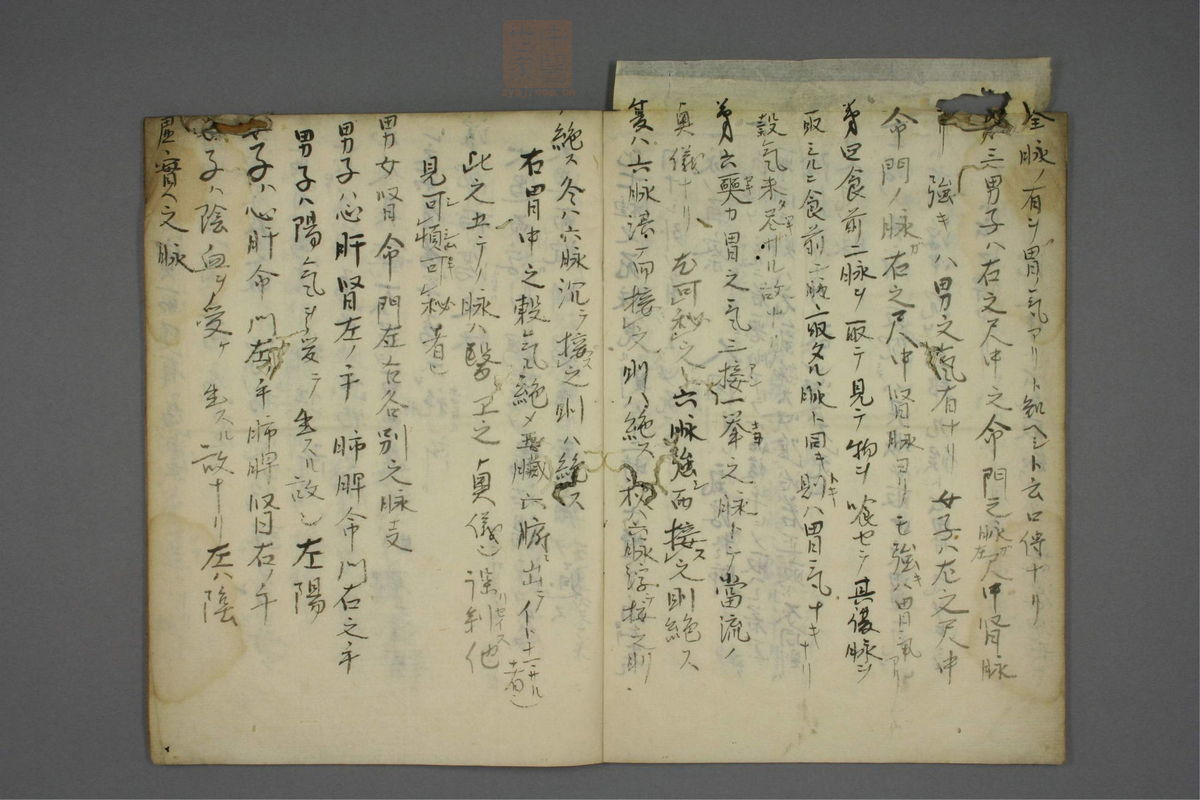 全脉ノ有ヲ胃ノ氣アリト知ヘシト云口傳ナリ
三男子ハ右之尺中之命門之脉ガ左尺中腎脉
強キハ男之氣有ナリ女子ハ左之尺中
命門ノ脉ガ右之尺中腎脉ヨリモ強キハ胃氣アリ
第四食前ニ脉ヲ取テ見テ物ヲ喰セテ其後脉ヲ
取ミルニ食前ニ取タル脉ト同キ則ハ胃氣ナキナリ
穀氣未タ尽サル故ナリ
第六歐力胃之氣三接一挙之脉トテ當流ノ
奥儀ナリ尤可秘之六脉強而接之則絶ス
夏ハ六脉洪ニ而接ス則ハ絶ス秋六脉浮接之則
絶ス冬ハ六脉沉テ接之則ハ絶ス
右胃中之穀氣絶メ五臓六腑ニ出テイトナマサル者也
此之五テノ脉ハ醫工之奥儀也
見可慎可秘者也
男女腎命門左右各別之脉支
男子ハ心肝腎左ノ手肺脾命門右之手
男子ハ陽氣ヲ受テ生スル故也左陽
女子ハ心肝命門左手肺脾腎右ノ手
女子ハ陰血ヲ受ケ生スル故ナリ左ハ陰
虚實之脉